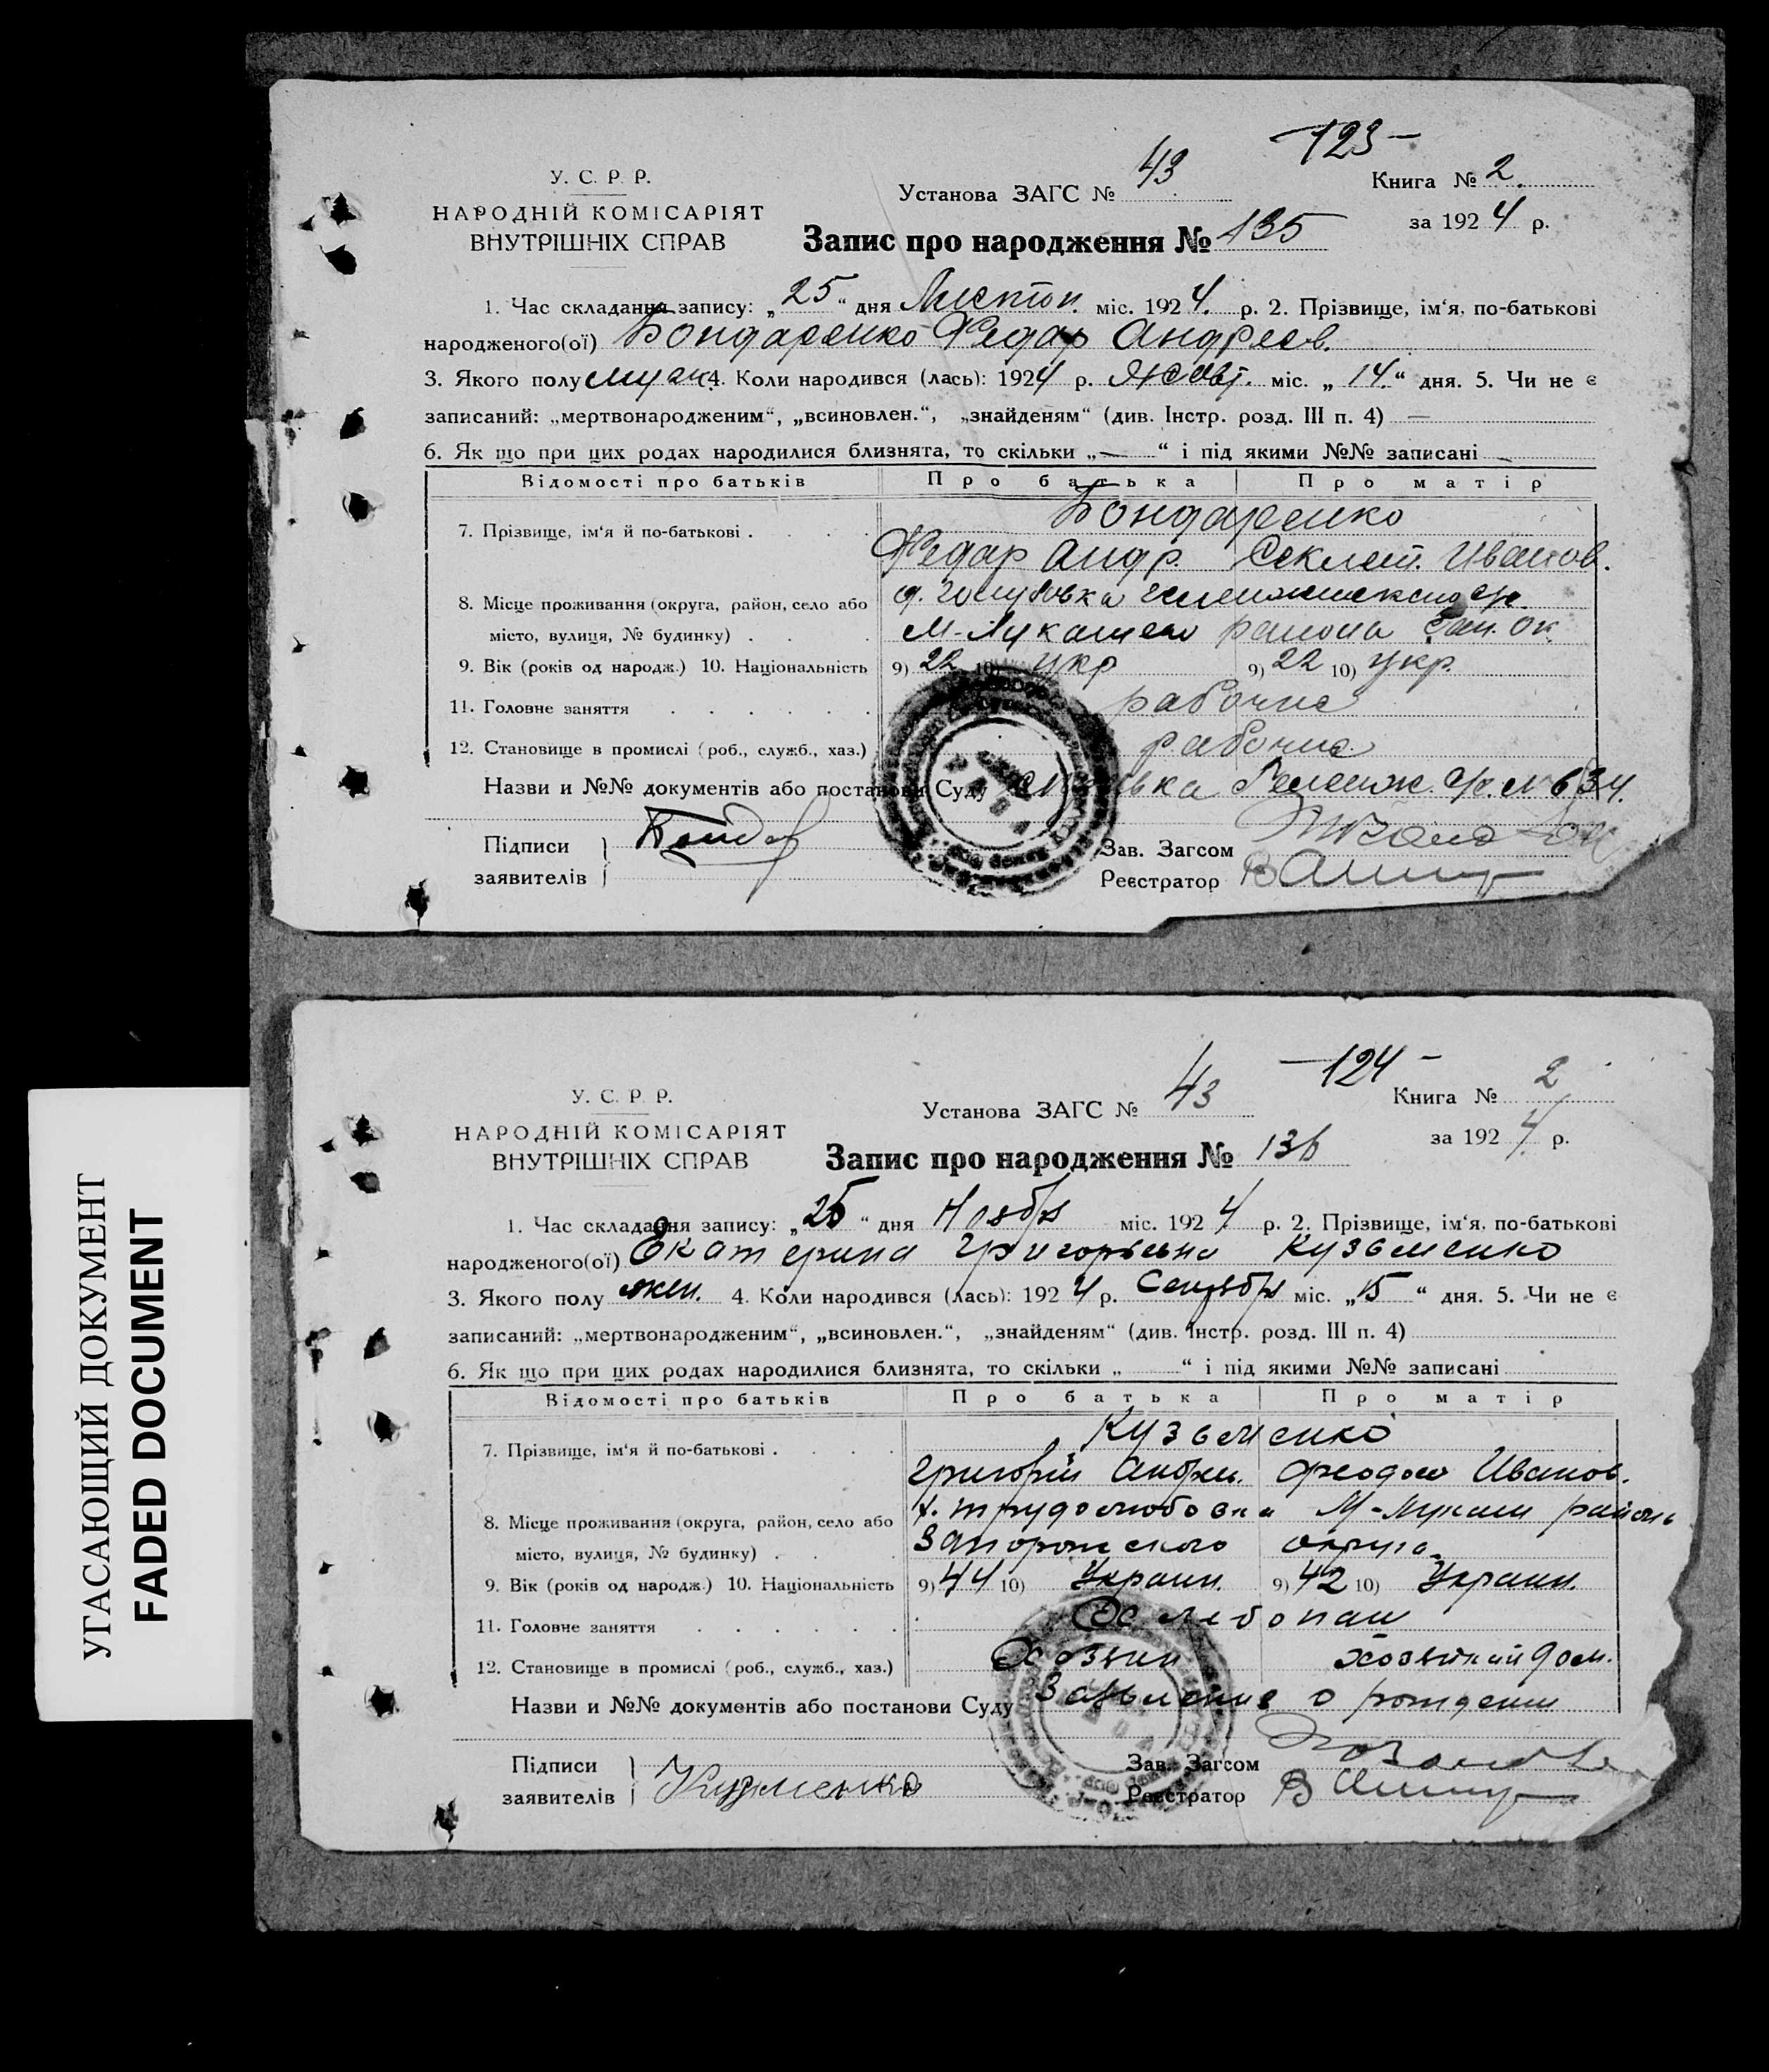 -123-
У. С. Р. Р.
НАРОДНІЙ КОМІСАРІЯТ
ВНУТРІШНІХ СПРАВ
Установа ЗАГС № 43
Книга № 2.
за 1924 р.
Запис про народження № 135
1. Час складання запису: „25“ дня Листоп. міс. 1924. р. 2. Прізвище, ім‘я, по-батькові
народженого(ої) Бондаренко Федар Андреев.
3. Якого полу муж. 4. Коли народився (лась): 1924 р. Жовт. міс. „14.“ дня. 5. Чи не є
записаний: „мертвонародженим“, „всиновлен.“, „знайденям“ (див. Інстр. розд. III п. 4) —
6. Як що при цих родах народилися близнята, то скільки „—“ і під якими №№ записані —
Відомості про батьків Про батька Про матір
7. Прізвище, ім‘я й по-батькові . . . . Бондаренко
Федар Андр. Секлет. Иванов.
8. Місце проживання (округа, район, село або
місто, вулиця, № будинку) . . . М-Лукашево района Зап. Ок.
9. Вік (років од народж.) 10. Національність 9) 22 10) Укр 9) 22 10) Укр.
11. Головне заняття . . . . . . рабочие
12. Становище в промислі (роб., служб., хаз.) рабочие
Назви и №№ документів або постанови Суду №634.
Підписи
заявителів
Зав. Загсом
Реєстратор
-124-
У. С. Р. Р.
НАРОДНІЙ КОМІСАРІЯТ
ВНУТРІШНІХ СПРАВ
Установа ЗАГС № 43
Книга № 2
за 1924 р.
Запис про народження № 136
1. Час складання запису: „25“ дня Ноября міс. 1924 р. 2. Прізвище, ім‘я, по-батькові
народженого(ої) Екатерина Григорьевна Кузьменко
3. Якого полу жен. 4. Коли народився (лась): 1924 р. Сентября міс. „15“ дня. 5. Чи не є
записаний: „мертвонародженим“, „всиновлен.“, „знайденям“ (див. Інстр. розд. III п. 4)
6. Як що при цих родах народилися близнята, то скільки „ “ і під якими №№ записані
Відомості про батьків Про батька Про матір
7. Прізвище, ім‘я й по-батькові . . . . Кузьменко
Григорій Андрее. Феодос Иванов.
8. Місце проживання (округа, район, село або х. Трудолюбовка М-Лукаш района
місто, вулиця, № будинку) . . . Запорожского округа
9. Вік (років од народж.) 10. Національність 9) 44 10) Украин. 9) 42 10) Украин.
11. Головне заняття . . . . . . Хлебопаш
12. Становище в промислі (роб., служб., хаз.) Хозяин хозяйкой дом.
Назви и №№ документів або постанови Суду Заявление о рождении
Підписи
заявителів Кузменко
Зав. Загсом
Реєстратор
УГАСАЮЩИЙ ДОКУМЕНТ
FADED DOCUMENT